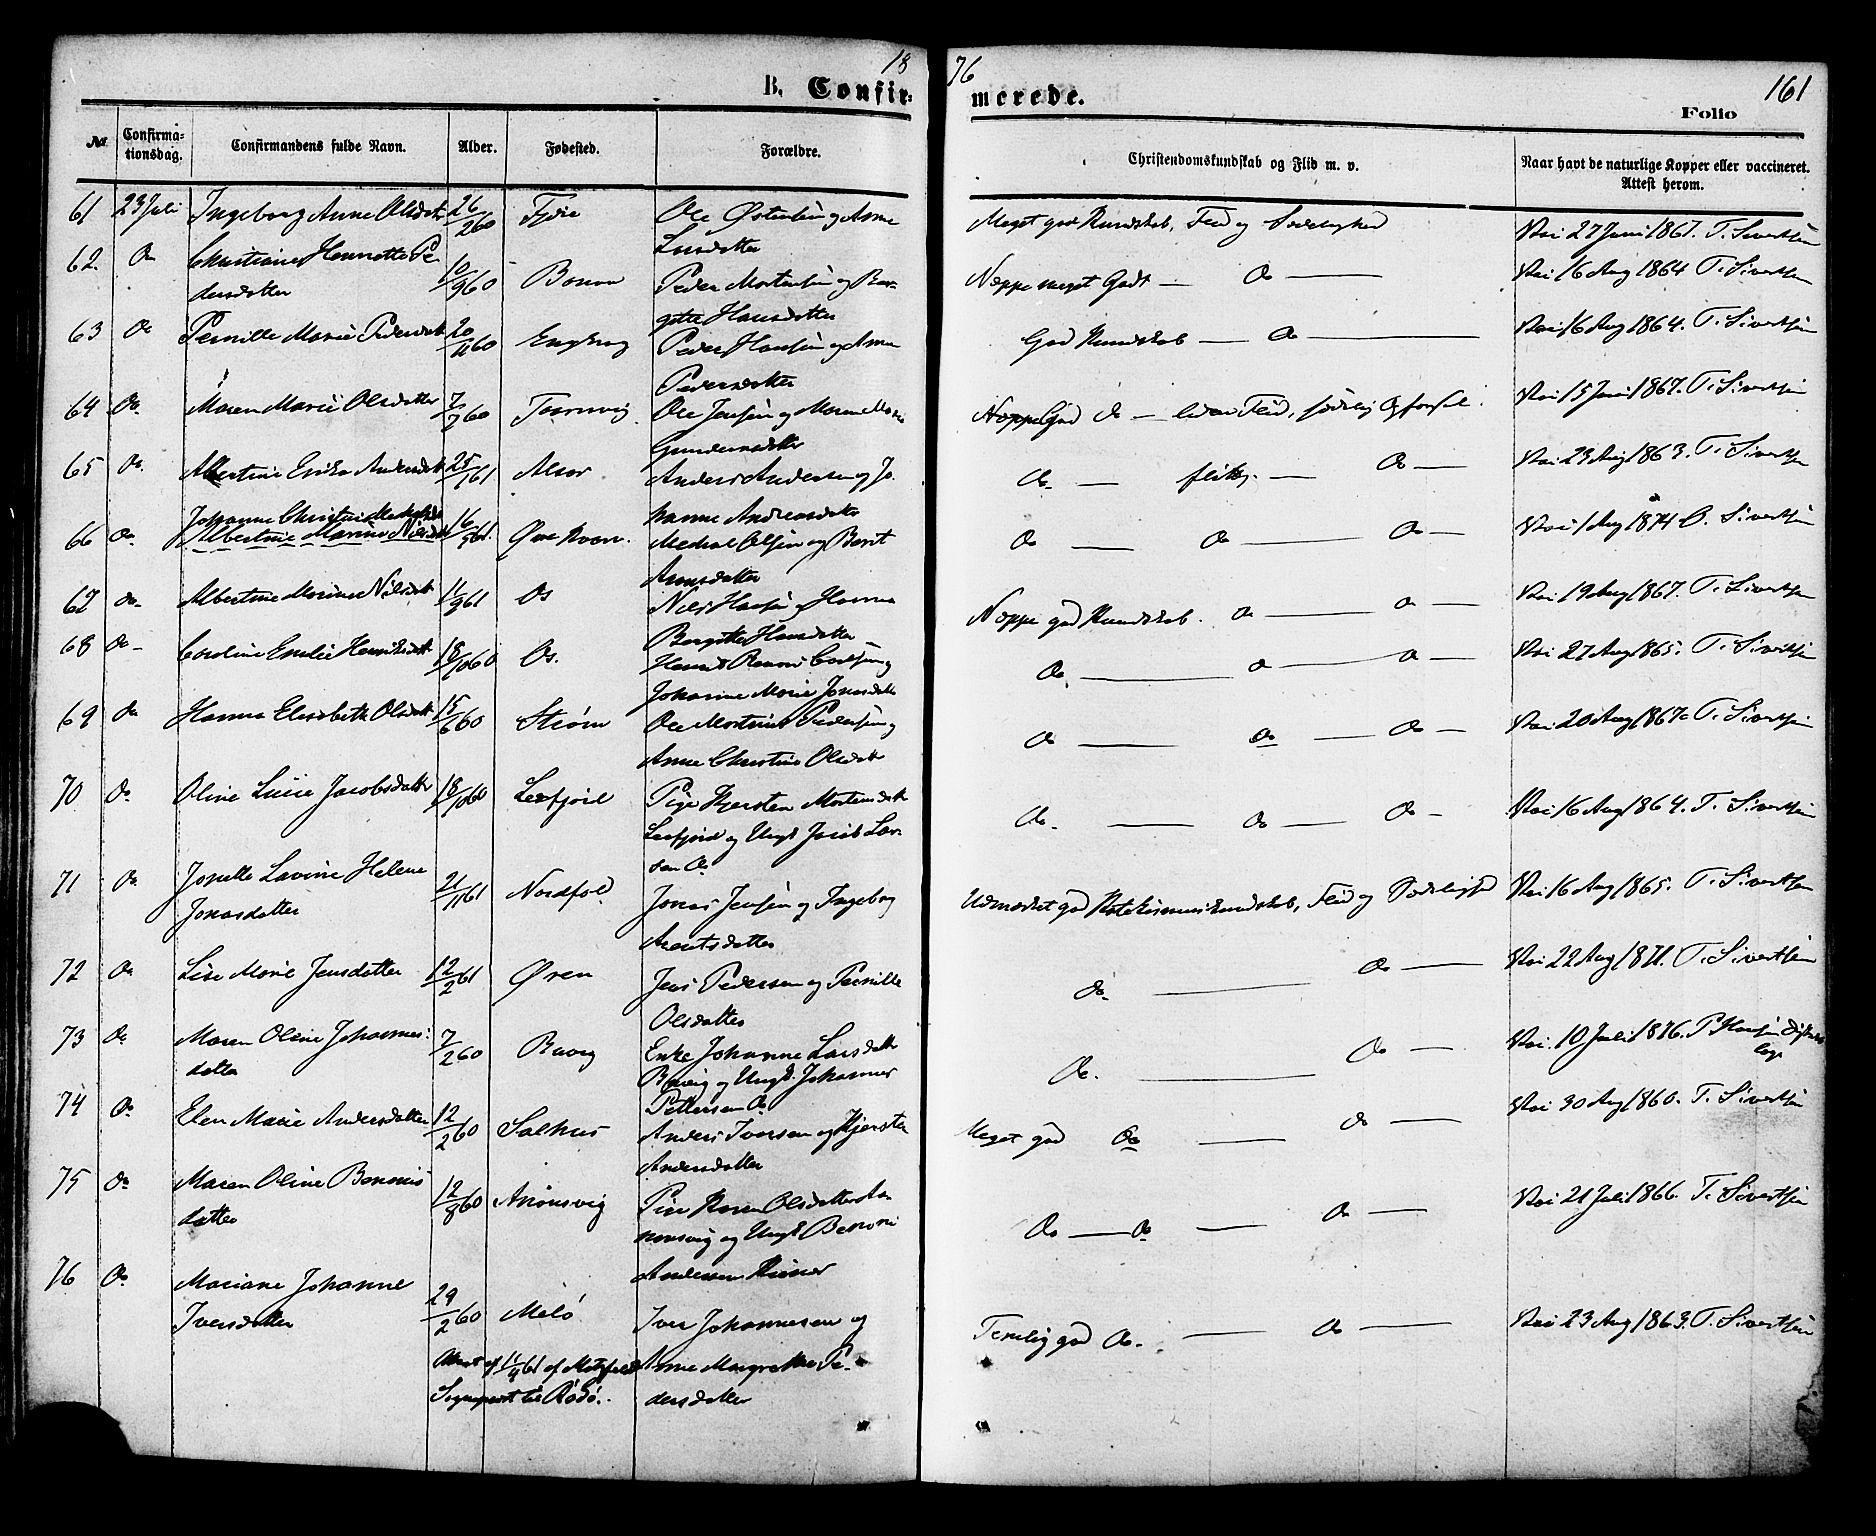 18
76
161
B. Confir-
merede.
Folio
№ Confirma-
tionsdag. Confirmandens fulde Navn. Alder. Fødested. Forældre. Christendomskundskab og Flid m. v. Naar havt de naturlige Kopper eller vaccineret.
Attest herom.
61 23 Juli Ingeborg Anne Olsdatr 26/2 60 Ole Østensen og Anne
Larsdatter
Meget god Kundskab, Flid og Sædelighed Vac 27 Juni 1867. T. Sivertsen
62. Do Christiane Henriette Pe
dersdatter 10/9 60 Peder Mortensen og Ber-
gitte Hansdatter
Neppe meget Godt — Do — Vac 16 Aug 1864 T. Sivertsen
63 Do Pernille Marie Pedersdatr 20/11 60 Engbug Peder Hansen og Anne
Pedersdatter
God Kundskab — Do — Vac 16 Aug 1864. T. Sivertsen
64 Do. Maren Marie Olsdatter 7/7 60 Taarnvig Ole Jensen og Maren Marie
Gundersdatter
Neppe God Do — liden Flid, sædelig Opførsel. Vac 15 Juni 1867. T. Sivertsen
65 Do. Albertine Erika Andersdatr 25/1 61 Alsor Anders Andersen og Jo-
hanne Andreasdatter
Do. — flittig. — Do — Vac 23 Aug 1863. T. Sivertsen
Johanne Christine
66 Do Albertine Marine Nilsdatr 16/5 61. Medual Olsen og Berit
Arnsdatter
Do — Do — Do — Vac 1 Aug 1874 O. Sivertsen
67 do- Albertine Marine Nilsdatr 11/9 61 Os Nils Hansen og Hanna
Bergitte Hansdatter
Neppe god Kundskab. Do — Do — Vac 19 Aug 1867. T. Sivertsen
68 do- Cordine Emilie Henriksdatr 18/10 60 Os.
Johanne Marie Jonasdatr
Do. — Do — Do — Vac 27 Aug 1865. T. Sivertsen
69 Do Hanna Elisabeth Olsdatr 15/6 60 Strøm Ole Mortinus Pedersen og
Anne Christine Olsdatr
Do — Do — Do — Vac 20 Aug 1867. T. Sivertsen
70 Do. Oline Lucie Jacobsdatter 18/10 60 Leefjord Pige Kjersten Mortensdatr
Leefjord og Ungk. Jacob Lar-
sen Do
Do. — Do — Do — Vac 16 Aug 1864. T. Sivertsen
71 Do. Josette Lavine Helene
Jonasdatter 21/11 61 Nordfold Jonas Jensen og Ingeborg
Arentsdatter
Udmærket god Katekismuskundskab, Flid og Sædelighed Vac 16 Aug 1865. T. Sivertsen
72 Do Lise Marie Jensdatter 12/2 61 Øren Jens Pedersen og Pernille
Olsdatter
Do. — Do — Vac 22 Aug 1871. T. Sivertsen
73 Do Maren Oline Johannes-
datter 7/2 60 Enke Johanne Larsdatr
og Ungk. Johannes
Pettersen Do
Do. — Do — Vac. 10 Juli 1876. P. Hansen Distrikts
læge
74 Do Elen Marie Andersdatter 12/2 60 Salhus Anders Iversen og Kjersten
Andersdatter
Meget god Do — Do — Vac 30 Aug 1860. T. Sivertsen
75 Do Maren Oline Bennonis
datter 12/8 60 Pige Karen Olsdatter
og Ungk. Bennoni
Andersen
Do — Do — Do — Vac 21 Juli 1866. T. Sivertsen
76 Do Mariane Johanne
Iversdatter 29/2 60 Melø Iver Johannesen og
Anne Margrethe Pe-
dersdatter
Temelig god Do. — Do — Vac 23 Aug 1863. T. Sivertsen
Attest af 11/4 61 af
Sogneprest til Rødø.